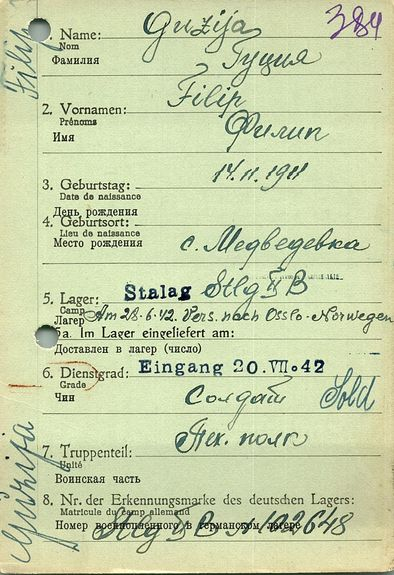 384
1. Name: Guzija
Nom
Фамилия Гуция
2. Vornamen: Filip
Prénoms
Имя Филип
3. Geburtstag: 14.11.1911
Date de naissance
День рождения
4. Geburtsort:
Lieu de naissance
Место рождения с. Медведевка
5. Lager: Stalag Stlg II B
Camp
Лагерь Am 28.6.42 Vers. nach Osslo-Norwegen
5a. Im Lager eingeliefert am:
Доставлен в лагерь (число)
6. Dienstgrad: Eingang 20.VII.42
Grade
Чин Солдат Sold
7. Truppenteil: Пех. полк
Unité
Воинская часть
8. Nr. der Erkennungsmarke des deutschen Lagers:
Matricule du camp allemand
Номер военнопленного в германском лагере
Stlg II B № 102648
Filip
Guzija